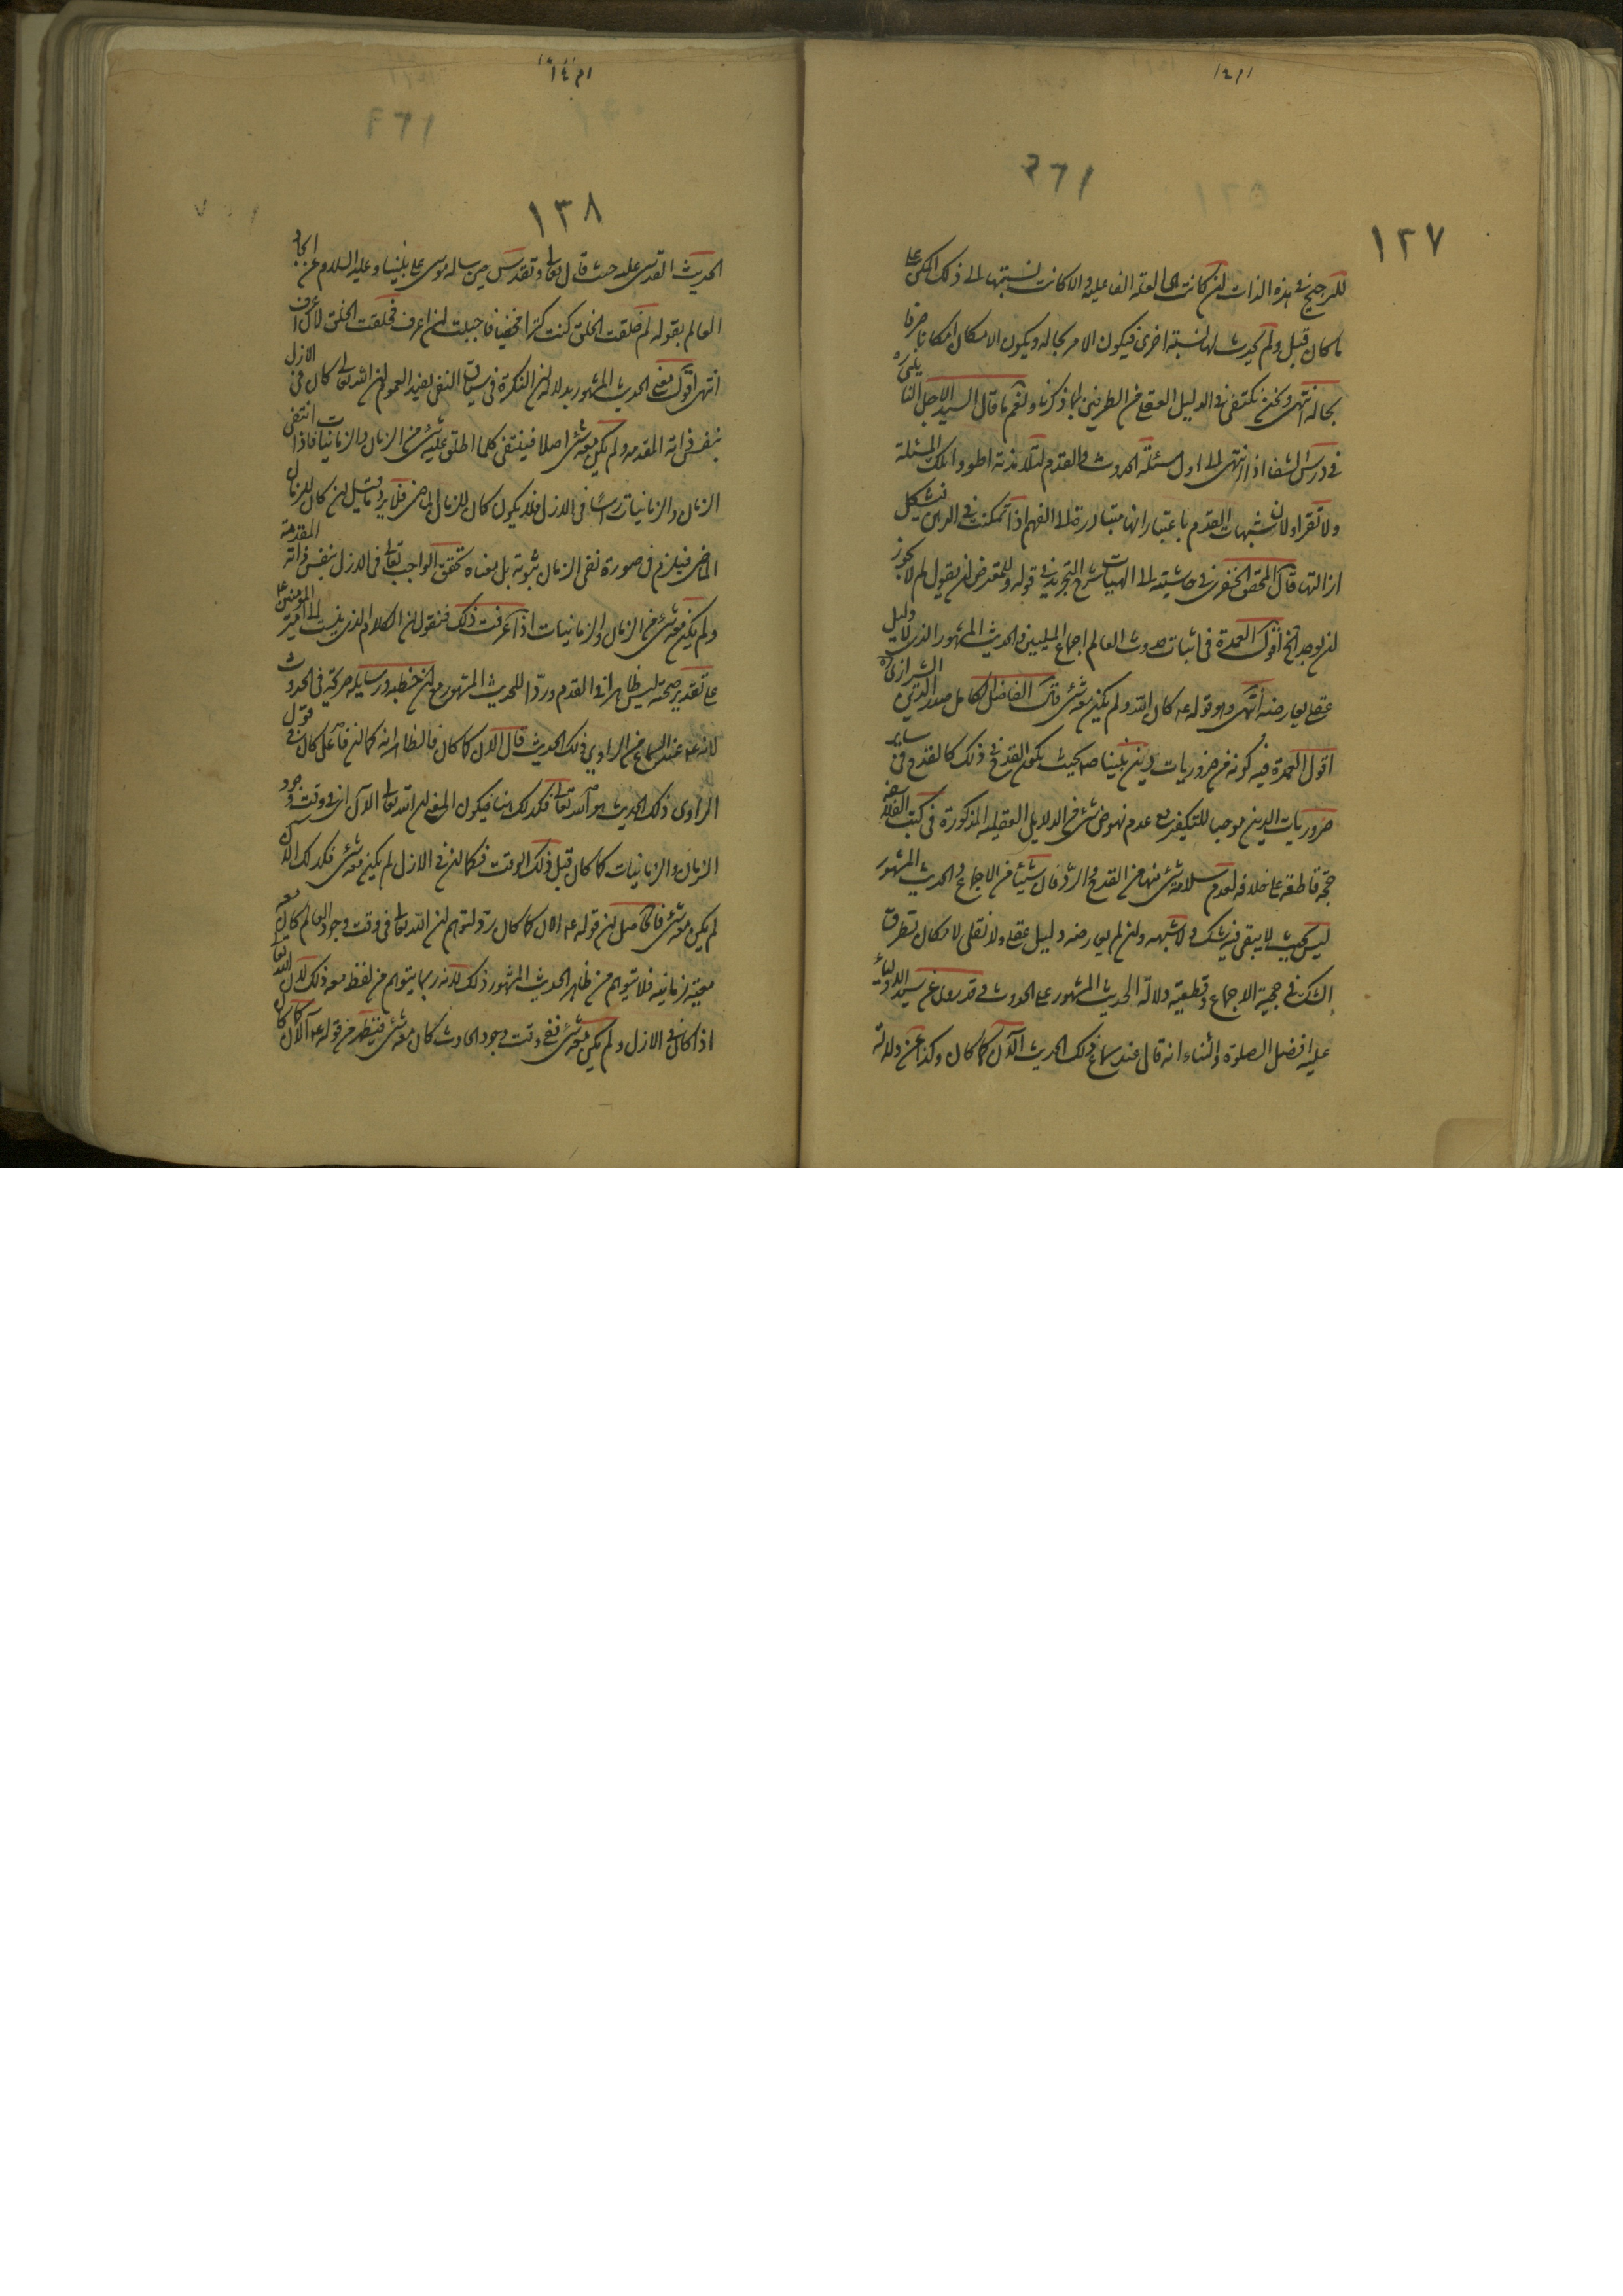 ١٣٧
للترجيح في هذه الذات ان كانت هي العلة الفاعلية والا كانت نسبتها الى ذلك الممكن على
ما كان قبل ولم يحدث لها نسبة اخرى فيكون الامر بحاله ويكون الامكان امكانا صرفا
بحاله انتهى ونحن نكتفي في الدليل العقلي من الطرفين بما ذكرنا ونعم ما قال السيد الاجل
في درس الشفا اذا انتهى الى اول مسئلة الحدوث والقدم لتلامذته اطووا تلك المسئلة
ولا تقراو لان شبهات القدم باعتبار انها متبادرة الى الفهم اذا تمكنت في الذهن فيشكل
ازالتها قال المحقق الخفري في حاشيته الى الهيات شرح التجريد في قوله وللمعترض ان يقول لم لا يجوز
ان يوجد الخ اقول العمدة في اثبات حدوث العالم اجماع المليين والحديث المشهور الذي لا دليل
عقلي يعارضه انتهى وهو قوله ع كان الله ولم يكن معه شئ قال الفاضل الكامل صدر الدين الشيرازي
اقول العمدة فيه كونه من ضروريات دين نبينا ص بحيث يكون القدح في ذلك كالقدح في ساير
ضروريات الدين موجبا للتكفير مع عدم نهوض شئ من الدلايل العقلية المذكورة في كتب الفلاسفة
حجة قاطعة على خلافه لعدم سلامة شئ منها من القدح والرد فان شيئا من الاجماع والحديث المشهور
ليس بحيث لا يبقى فيه شك ولا شبهه وان لم يعارضه دليل عقلي ولا نقلي لامكان تطرق
الشك في حجية الاجماع وقطعية دلالة الحديث المشهور على الحدوث وقد روي عن سيد الاولياء
عليه افضل الصلوة والثناء انه قال عند سماع ذلك الحديث الآن كما كان وكذا عن دلالة
١٣٨
الحديث القدسي عليه حيث قال تعالى وتقدس حين ساله موسى على نبينا وعليه السلام عن ايجاد
العالم بقوله لم خلقت الخلق كنت كنزا مخفيا فاحببت ان اعرف فخلقت الخلق لاعرف
انتهى اقول معنى الحديث المشهور بدلالة ان النكرة في سياق النفي يفيد العموم ان الله تعالى كان في الازل
بنفس ذاته المقدسة ولم يكن معه شئ اصلا فينتفي كلما اطلق عليه شئ من الزمان والزمانيات فاذا انتفى
الزمان والزمانيات راسا في الازل فلا يكون كان للزمان الماضي فلا يرد ما قيل ان كان للزمان
الماضي فيلزم في صورة نفي الزمان ثبوته بل معناه تحقق الواجب تعالى في الازل بنفس ذاته المقدسة
ولم يكن معه شئ من الزمان والزمانيات اذا عرفت ذلك فنقول ان الكلام الذي ينسب الى امير المؤمنين ع
على تقدير صحته ليس ظاهرا في القدم وردا للحديث المشهور مع ان خطبه ورسايله صريحة في الحدوث
لانه ع عند السماع من الراوي ذلك الحديث قال الان كما كان فالظاهر انه كما ان فاعل كان في قول
الراوي ذلك الحديث هو الله تعالى فكذلك هنا فيكون المعنى ان الله تعالى الآن اي في وقت وجود
الزمان والزمانيات كما كان قبل ذلك الوقت فكما ان في الازل لم يكن معه شئ فكذلك الان
لم يكن معه شئ فالحاصل ان قوله ع الان كما كان رد لتوهم ان الله تعالى في وقت وجود العالم كان معه
معية زمانية فلا يتوهم من ظاهر الحديث المشهور ذلك لانه ربما يتوهم من لفظ معه ذلك لان الله تعالى
اذا كان في الازل ولم يكن معه شئ ففي وقت وجود الحادث كان معه شئ فيظهر من قوله ع الآن كما كان